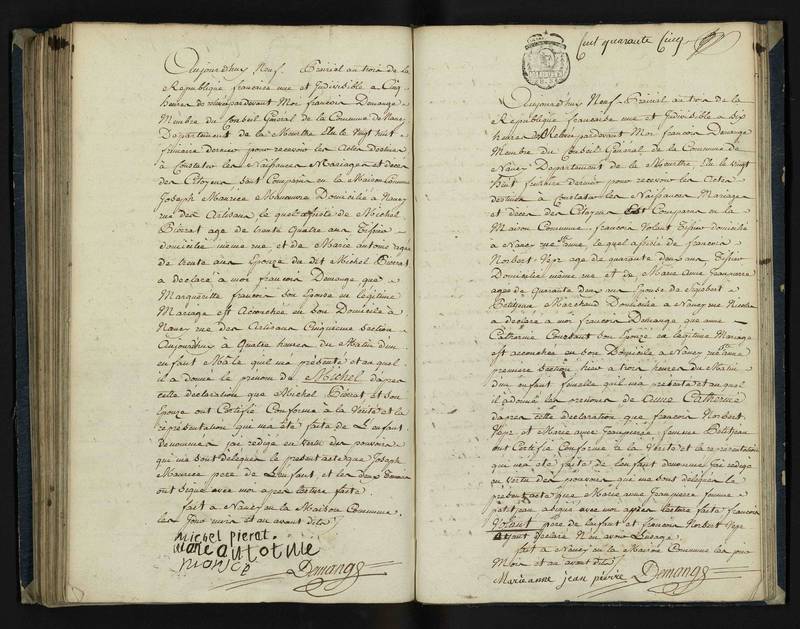 Aujourd'huy Neuf Prairial an trois de la
Republique francoise une et Indivisible a Cinq
heures de relevée pardevant Moi françois Demange
Membre du Conseil General de la Commune de Nancy
Departement de la Meurthe Elu le vingt huit
frimaire dernier pour recevoir les Actes Destinés
à Constater les Naissances Mariages et décès
des Citoyens sont Comparus en la Maison Commune
Joseph Mauriée Domicilié à Nancy
rue des Artisans le quel assisté de Michel
Pierrat agé de trente quatre ans Tissier
domicilié même rue et de Marie antoine
de trente ans Epouze du dit Michel Pierrat
a déclaré à moi françois Demange que
Margueritte françois son Epouse en légitime
Mariage est Accouchée en son Domicile à
Nancy rue des Artisans Cinquieme Section
Aujourdhuy à Quatre heures du Matin d'un
enfant Male qu'il m'a présenté et au quel
il a donné le prénom de Michel d'apres
cette declaration que Michel Pierrat et son
Epouze ont Certifié Conforme à la Vérité et la
réprésentation qui m'a été faite de L'enfant
denommé j'ai redigé en vertu des pouvoirs
qui me sont délégués le present acte que Joseph
Mauriée pere de L'enfant et les deux Temoins
ont signé avec moi apres lecture faite
fait à Nancy en la Maison Commune
les Jour mois et an avant dits
michel pierat
marie antoinie
Demange
Cent quarante Cinq
Aujourdhuy Neuf Prairial an trois de la
Republique francaise une et Indivisible a Six
heures de Relevée pardevant Moi françois Demange
Membre du Conseil Général de la Commune de
Nancy Departement de la Meurthe Elu le vingt
huit frimaire dernier pour recevoir les Actes
destinés à Constater les Naissances Mariages
et décès des Citoyens Est Comparu en la
Maison Commune françois Volant Tissier domicilié
à Nancy rue le quel assisté de francois
Norbert agé de quarante deux ans Tissier
Domicilié même rue et de Marie Anne Jeanpierre
agée de quarante deux ans Epouse de
Petitjean Marchand Domicilié à Nancy rue
a déclaré à moi françois Demange que anne
Catherine Coustant son Epouze en légitime Mariage
est accouchée en son Domicile à Nancy rue
premiere Section hier à trois heures du Matin
d'un enfant femelle qu'il m'a présenté et au quel
il a donné les prenoms de Anne Catherine
d'apres cette declaration que francois Norbert
et Marie anne Jeanpierre femme Petitjean
ont Certifié Conforme à la Vérité et la représentation
qui m'a été faite de l'enfant denommé j'ai rédigé
en vertu des pouvoirs qui me sont délégués le
présent acte que Marie anne Jeanpierre femme
petitjean a signé avec moi apres lecture faite francois
Volant pere de l'enfant et francois Norbert
ayant declaré N'en avoir L'usage
fait à Nancy en la Maison Commune les jour
Mois et an avant dits
Marie anne jean pierre Demange